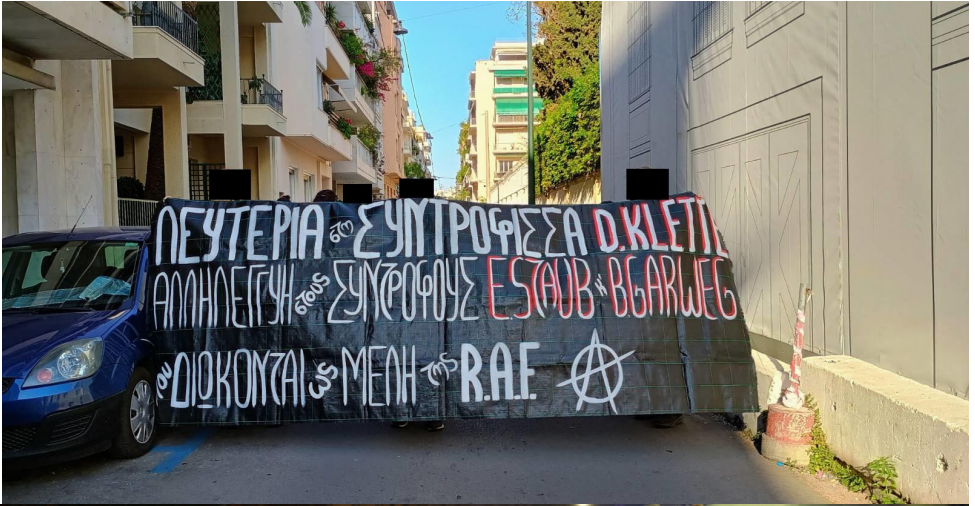 ΛΕΥΤΕΡΙΑ στη ΣΥΝΤΡΟΦΙΣΣΑ D.KLETTE
ΑΛΛΗΛΕΓΓΥΗ στους ΣΥΝΤΡΟΦΟΥΣ E.STAUB κ' B.GARWEG
που ΔΙΩΚΟΝΤΑΙ ως ΜΕΛΗ της R.A.F.